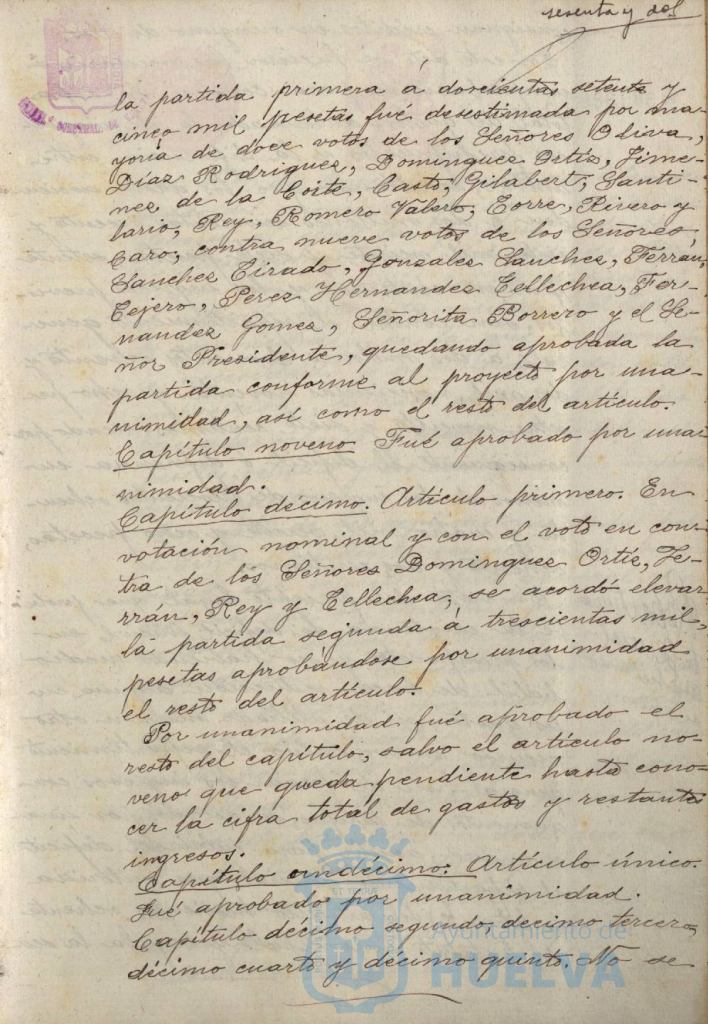 sesenta y dos
la partida primera á doscientas setenta y
cinco mil pesetas fué desestimada por ma-
yoría de doce votos de los Señores Oliva,
Díaz Rodriguez, Dominguez Ortíz, Jime-
nez de la Corte, Casto, Gilabert, Santi-
lario, Rey, Romero Valero, Torre, Rivero y
Caro, contra nueve votos de los Señores,
Sanchez Tirado, Gonzalez Sanchez, Ferrán,
Tejero, Perez Hernandez Tellechea, Fer-
nandez Gomez, Señorita Borrero y el Se-
ñor Presidente, quedando aprobada la
partida conforme al proyecto por una-
nimidad, así como el resto del artículo.
Capítulo noveno Fué aprobado por unai
nimidad.
Capítulo décimo. Artículo primero. En
votación nominal y con el voto en con-
tra de los Señores Dominguez Ortíz, Fe-
rrán, Rey y Tellechea, se acordó elevar
la partida segunda á trescientas mil,
pesetas aprobandose por unanimidad
el resto del artículo.
Por unanimidad fué aprobado el
resto del capítulo, salvo el artículo no-
veno que queda pendiente hasta cono-
cer la cifra total de gastos y restante
ingresos.
Capítulo undécimo. Artículo único.
Fué aprobado por unanimidad.
Capítulo décimo segundo, decimo tercero,
décimo cuarto y décimo quinto. No se
Ayuntamiento de
HUELVA